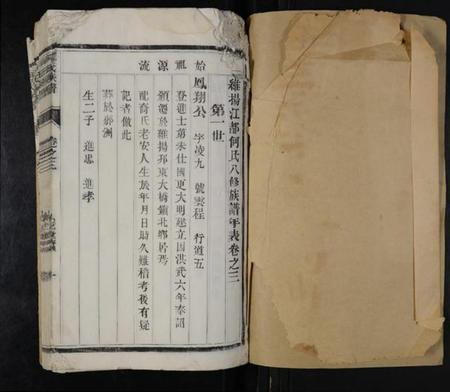 維揚江都何氏八修族譜年表卷之三
第一世
始祖源流
鳳翔公 字凌九 號雲程 行道五
登進士第未仕國更大明建立因洪武六年奉詔
頒遷於維揚邗東大橋鎮北鄉居焉
配喬氏老安人生於年月日時久難稽考後有疑
記者倣此
葬於
生二子 進忠 進孝